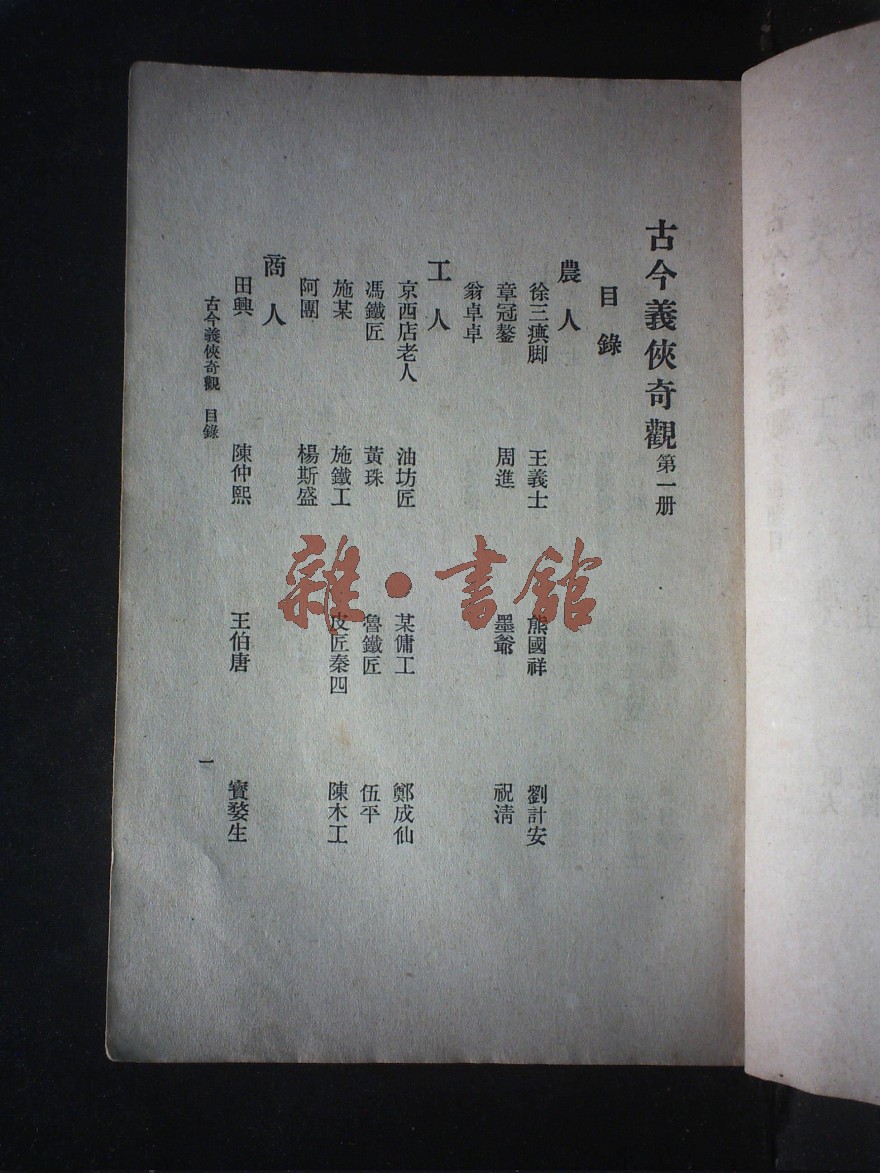 古今義俠奇觀 第一册
目錄
農人
徐三瘼脚 王義士 熊國祥 劉計安
章冠鏊 周進 墨爺 祝淸
翁卓卓
工人
京西店老人 油坊匠 某傭工 鄭成仙
馮鐵匠 黃珠 魯鐵匠 伍平
施某 施鐵工 皮匠秦四 陳木工
阿團 楊斯盛
商人
田興 陳仲熙 王伯唐 寶婺生
古今義俠奇觀 目錄 一
雜·書館